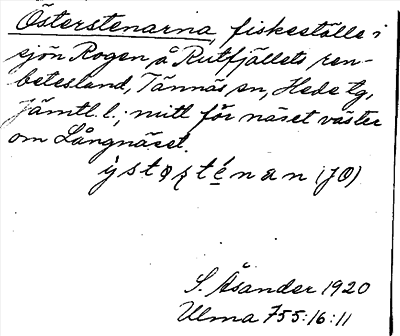 Österstenarna, fiskeställe i
sjön Rogen, å Rutfjällets ren-
betesland, Tännäs sn, Hede tg,
Jämtl. l.; mitt för näset väster
om Långnäset.
(JO)
S. Åsander 1920
Ulma 755:16:11